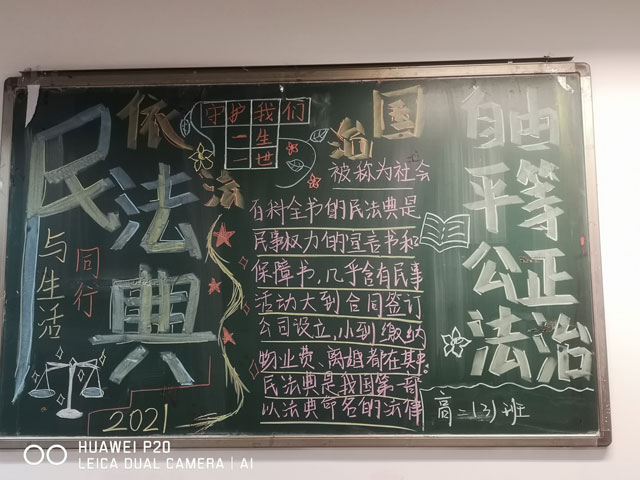 民法典
与生活
同行
2021
依法治国
守护我们
一生
一世
被称为社会
百科全书的民法典是
民事权力的宣言书和
保障书,几乎含有民事
活动大到合同签订
公司设立,小到缴纳
物业费、离婚都在其中.
民法典是我国第一部
以法典命名的法律
自由
平等
公正
法治
高二(3)班
HUAWEI P20
LEICA DUAL CAMERA | AI